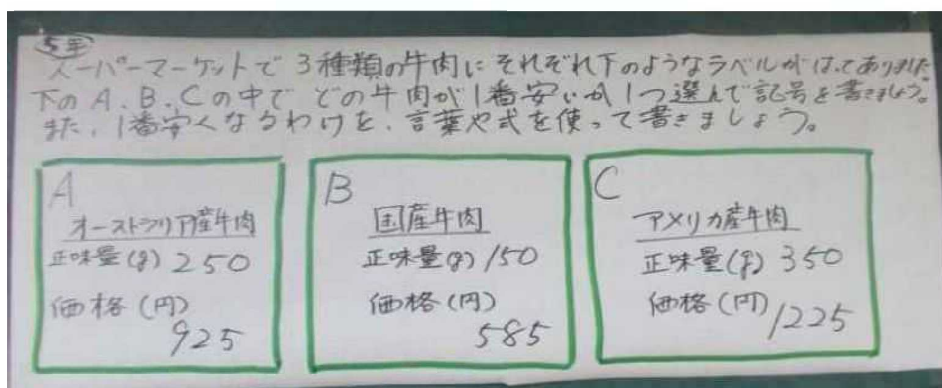 5年
スーパーマーケットで3種類の牛肉にそれぞれ下のようなラベルがはってありました
下のA、B、Cの中でどの牛肉が1番安いか1つ選んで記号を書きましょう。
また、1番安くなるわけを、言葉や式を使って書きましょう。
A
オーストラリア産牛肉
正味量(g) 250
価格(円)
925
B
国産牛肉
正味量(g) 150
価格(円)
585
C
アメリカ産牛肉
正味量(g) 350
価格(円)
1225